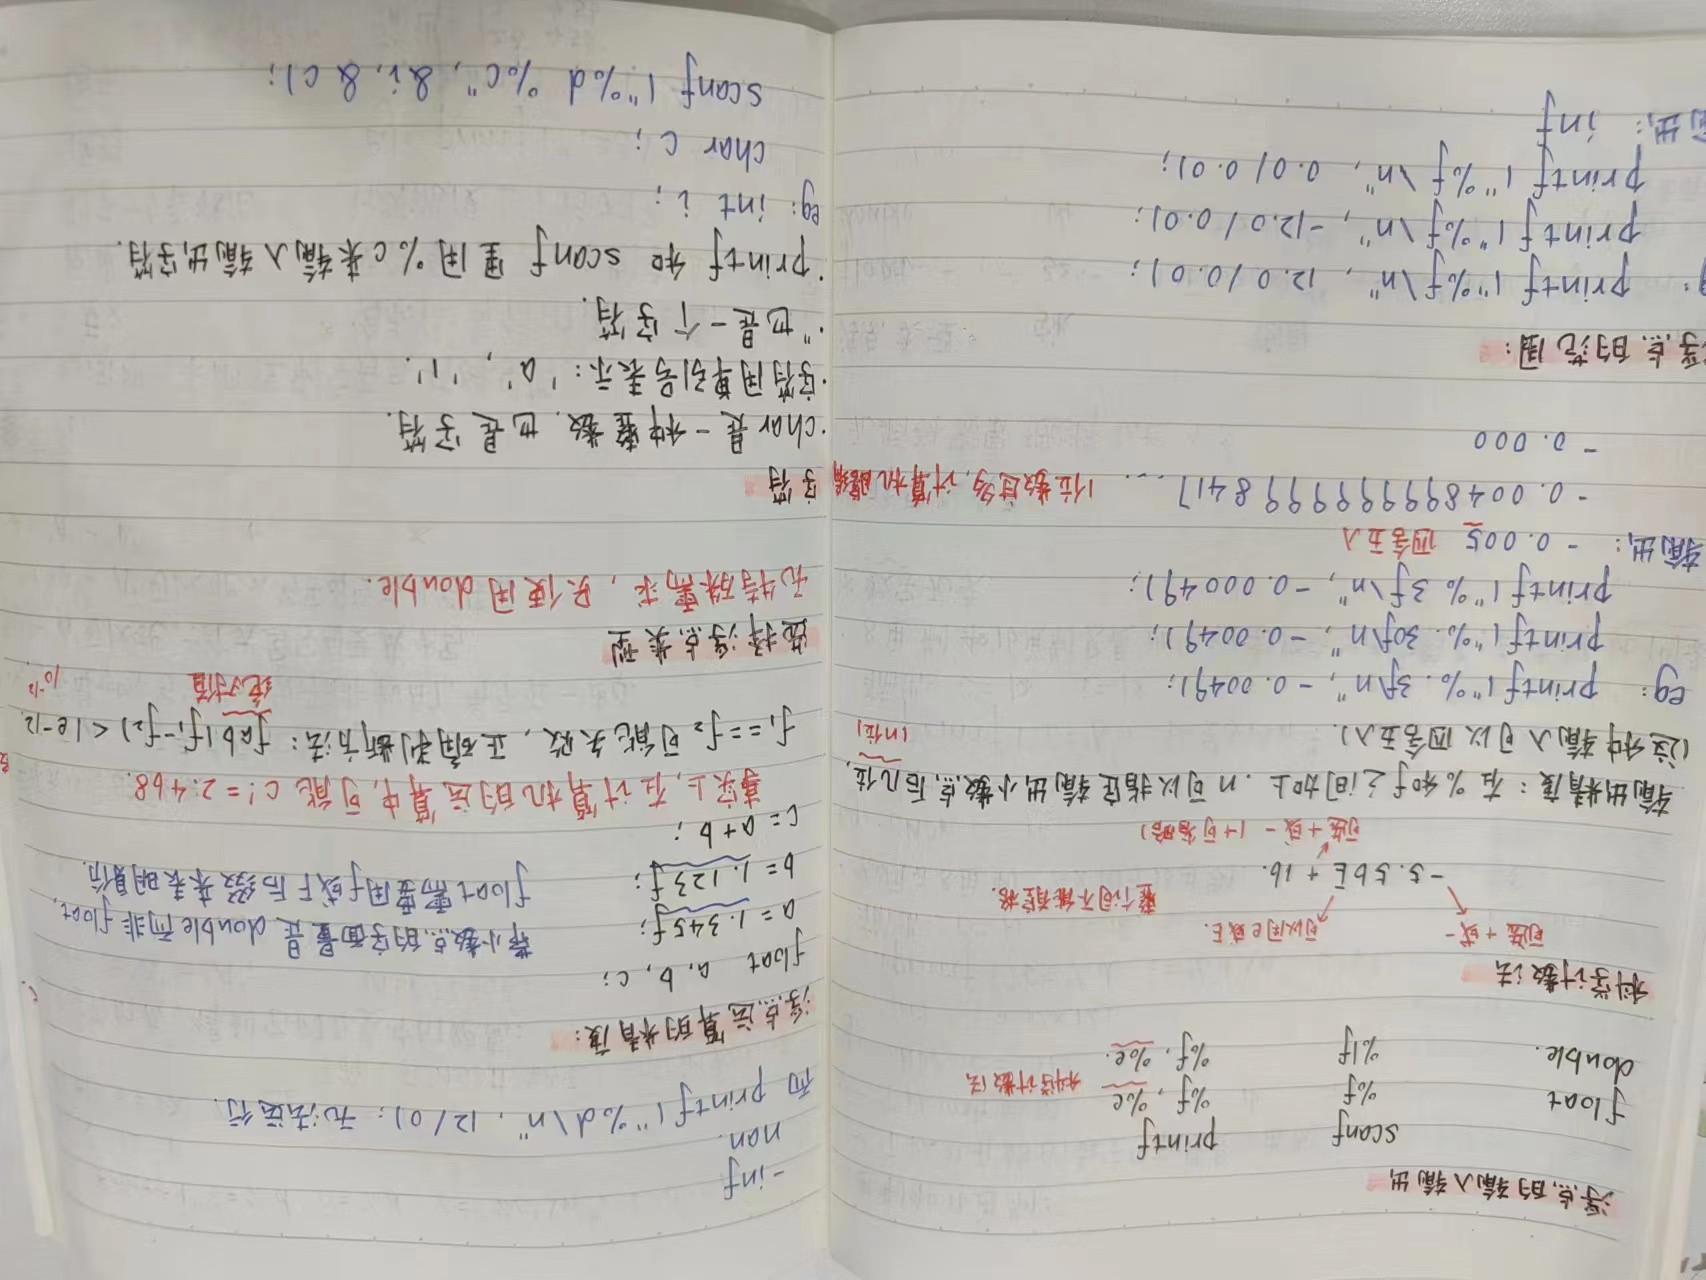 浮点的输入输出
scanf printf
float %f %f, %e 科学计数法
double. %lf %f, %e.
科学计数法
可选+或- 可以用e或E.
整个词不能有空格.
-5.56E+16.
可选+或- (+可省略)
输出精度：在%和f之间加上.n可以指定输出小数点后几位,
(n位)
(这种输入可以四舍五入).
eg: printf("%.3f\n", -0.0049);
printf("%.30f\n", -0.0049);
printf("%.3f\n", -0.00049);
输出: -0.005 四舍五入
-0.00489999999998417... (位数过多,计算机瞎编
-0.000
浮点的范围:
printf("%f\n", 12.0/0.0);
printf("%f\n", -12.0/0.0);
printf("%f\n", 0.0/0.0);
输出: inf
-inf
nan.
而 printf("%d\n", 12/0); 无法运行.
浮点运算的精度:
float a, b, c;
a=1.345f; 带小数点的字面量是double而非float,
b=1.123f; float需要用f或F后缀来表明身份.
c=a+b;
事实上,在计算机的运算中,可能 c!=2.468.
f₁==f₂可能失败,正确判断方法: fab(f₁-f₂)<1e-12.
绝对值 10⁻¹²
选择浮点类型
无特殊需求,只使用double.
字符
·char是一种整数,也是字符.
·字符用单引号表示: 'a', '1'.
·''也是一个字符.
·printf和scanf里用%c来输入输出字符.
eg: int i;
char c;
scanf("%d %c", &i, &c);